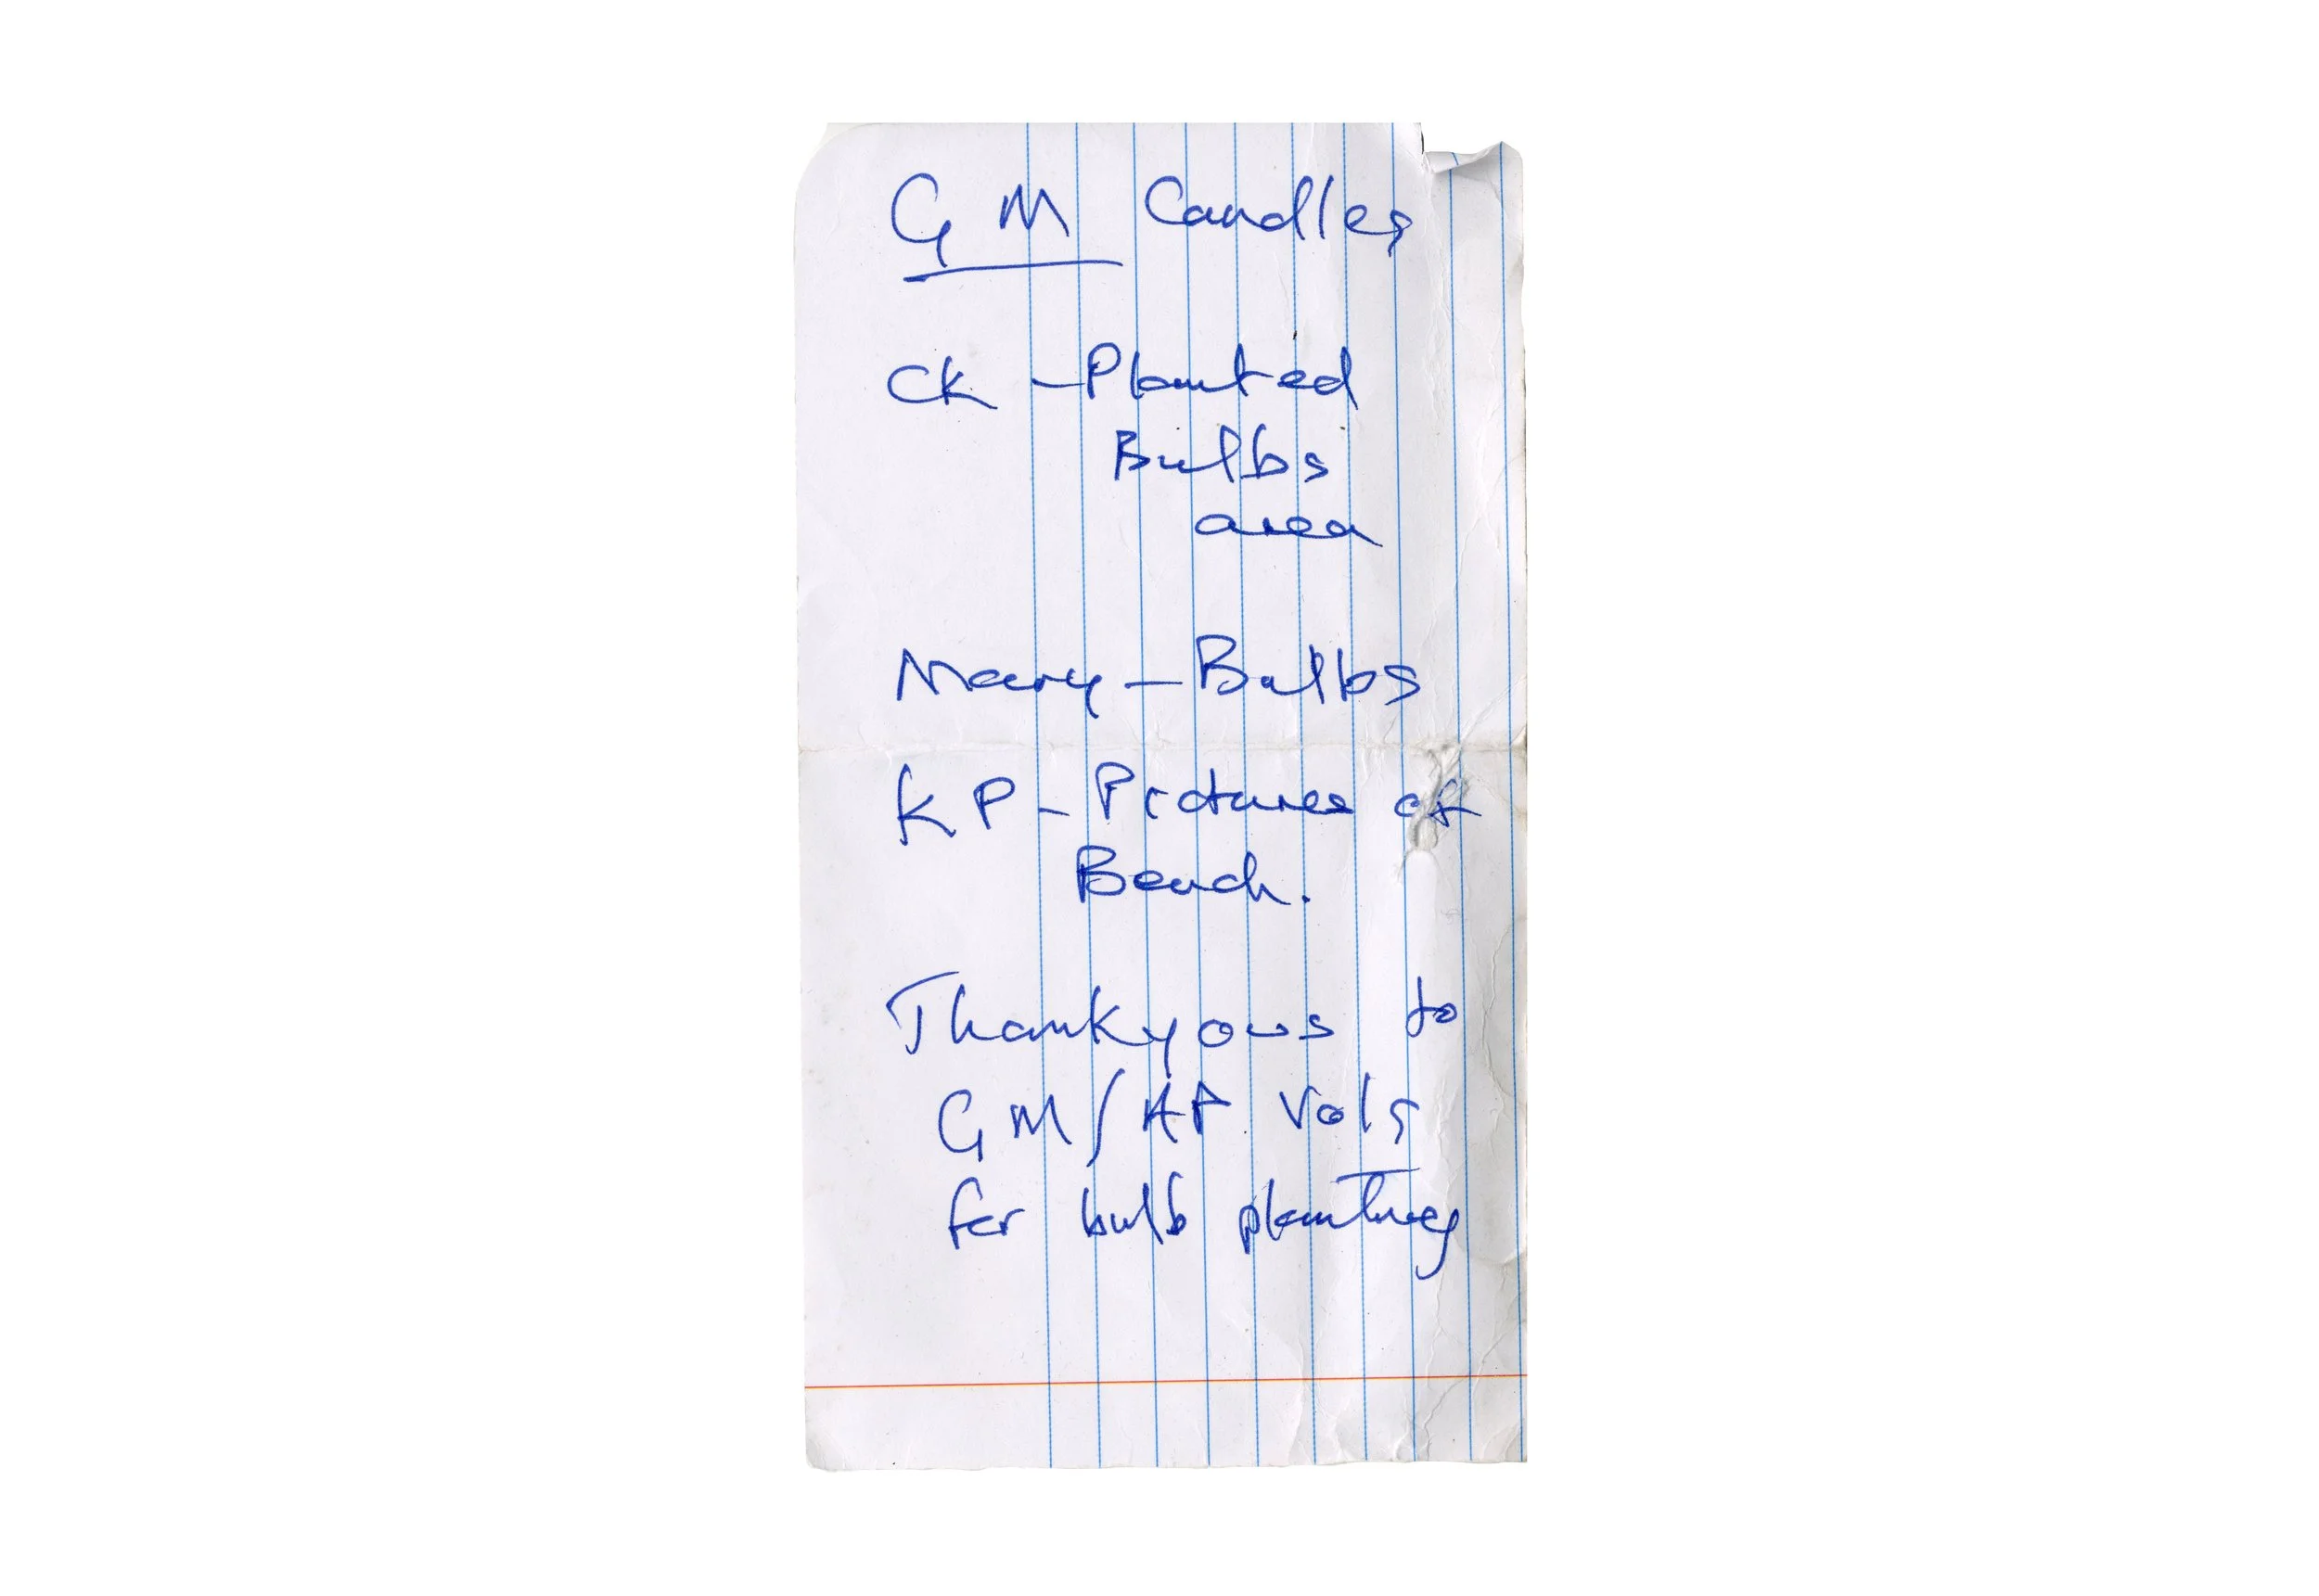 G M Candles
CK - Planted
Bulbs
area
Mary - Bulbs
KP - Pictures of
Bench.
Thankyous to
GM/AP Vols
for bulb planting